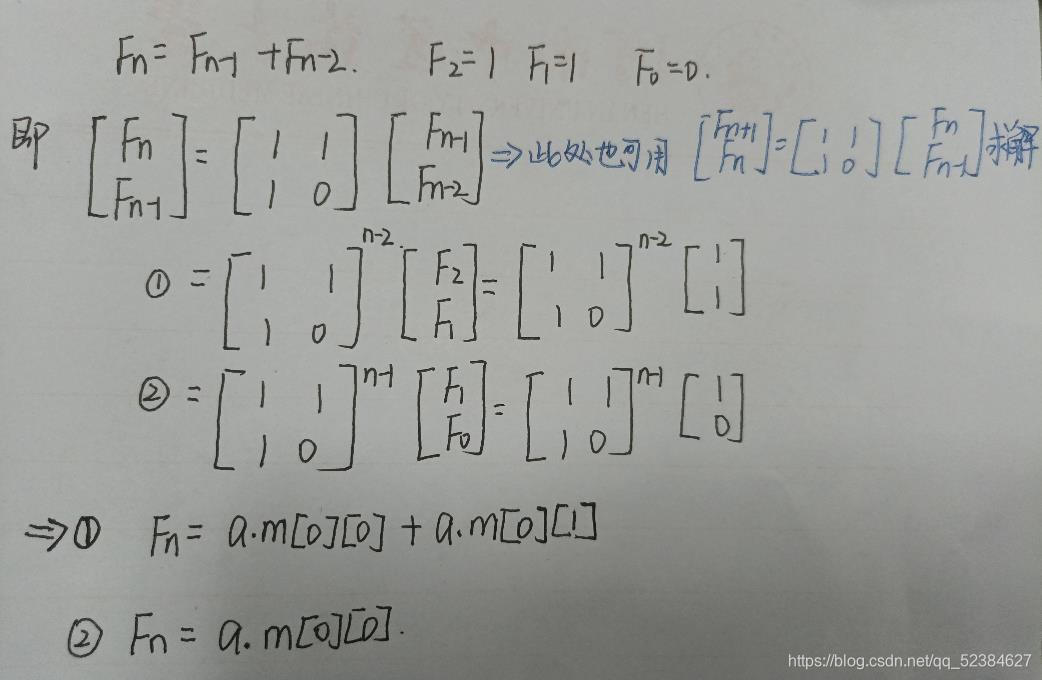 Fn = Fn-1 + Fn-2. F2=1 F1=1 F0=0.
即 [Fn Fn-1] = [1 1 1 0] [Fn-1 Fn-2] ⇒ 此处也可用 [Fn+1 Fn] = [1 1 1 0] [Fn Fn-1] 求解
① = [1 1 1 0]^n-2 [F2 F1] = [1 1 1 0]^n-2 [1 1]
② = [1 1 1 0]^n-1 [F1 F0] = [1 1 1 0]^n-1 [1 0]
⇒① Fn = a.m[0][0] + a.m[0][1]
② Fn = a.m[0][0].
https://blog.csdn.net/qq_52384627